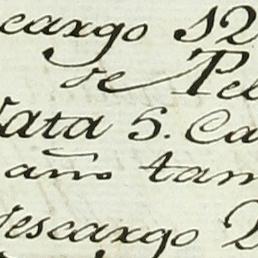 cargo 12
de Pel
ata S. Ca
año tam
descargo 2